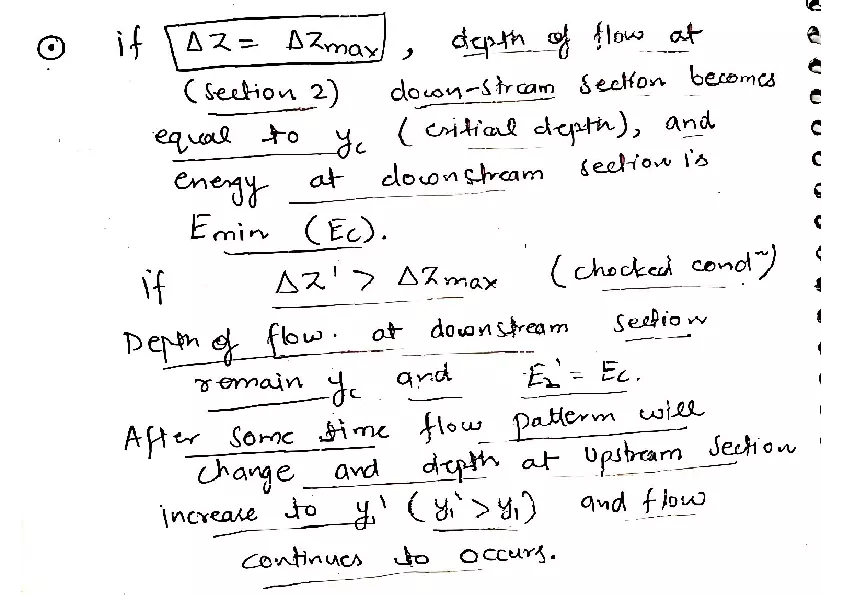 ⊙ if ΔZ = ΔZmax, depth of flow at
(section 2) down-stream section becomes
equal to yc (critical depth), and
energy at downstream section is
Emin (Ec).
if ΔZ' > ΔZmax (chocked condⁿ)
Depth of flow. at downstream section
remain yc and E2' = Ec.
After some time flow patterm will
change and depth at upstream section
increase to y1' (y1' > y1) and flow
continues to occurs.